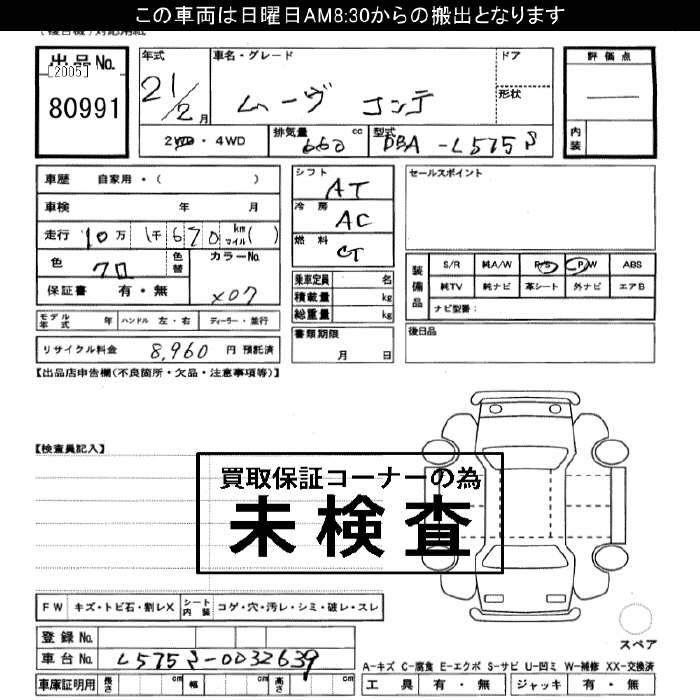 この車両は日曜日AM8:30からの搬出となります
出品No.
[2005]
80991
年式
21/2月
車名・グレード
ムーヴ コンテ
ドア
形状
評価点
内装
2WD・4WD
排気量
660 cc
型式
DBA-L575S
車歴 自家用・( )
車検 年 月
走行 10万 1千 670 km マイル( )
色 クロ
色替
カラーNo.
X07
保証書 有・無
シフト
AT
冷房
AC
燃料
乗車定員 名
積載量 kg
総重量 kg
書類期限
月 日
セールスポイント
装備品
S/R 純A/W P/S P/W ABS
純TV 純ナビ 革シート 外ナビ エアB
ナビ型番:
後日品
モデル年式 年 ハンドル 左・右 ディーラー・並行
リサイクル料金 8,960 円 預託済
【出品店申告欄(不良箇所・欠品・注意事項等)】
【検査員記入】
買取保証コーナーの為
未検査
FW キズ・トビ石・割レX シート内装 コゲ・穴・汚レ・シミ・破レ・スレ
登録No.
車台No. L575S-0032639
車庫証明用 長さ cm 幅 cm 高さ cm
スペア
A-キズ C-腐食 E-エクボ S-サビ U-凹ミ W-補修 XX-交換済
工具 有・無 ジャッキ 有・無